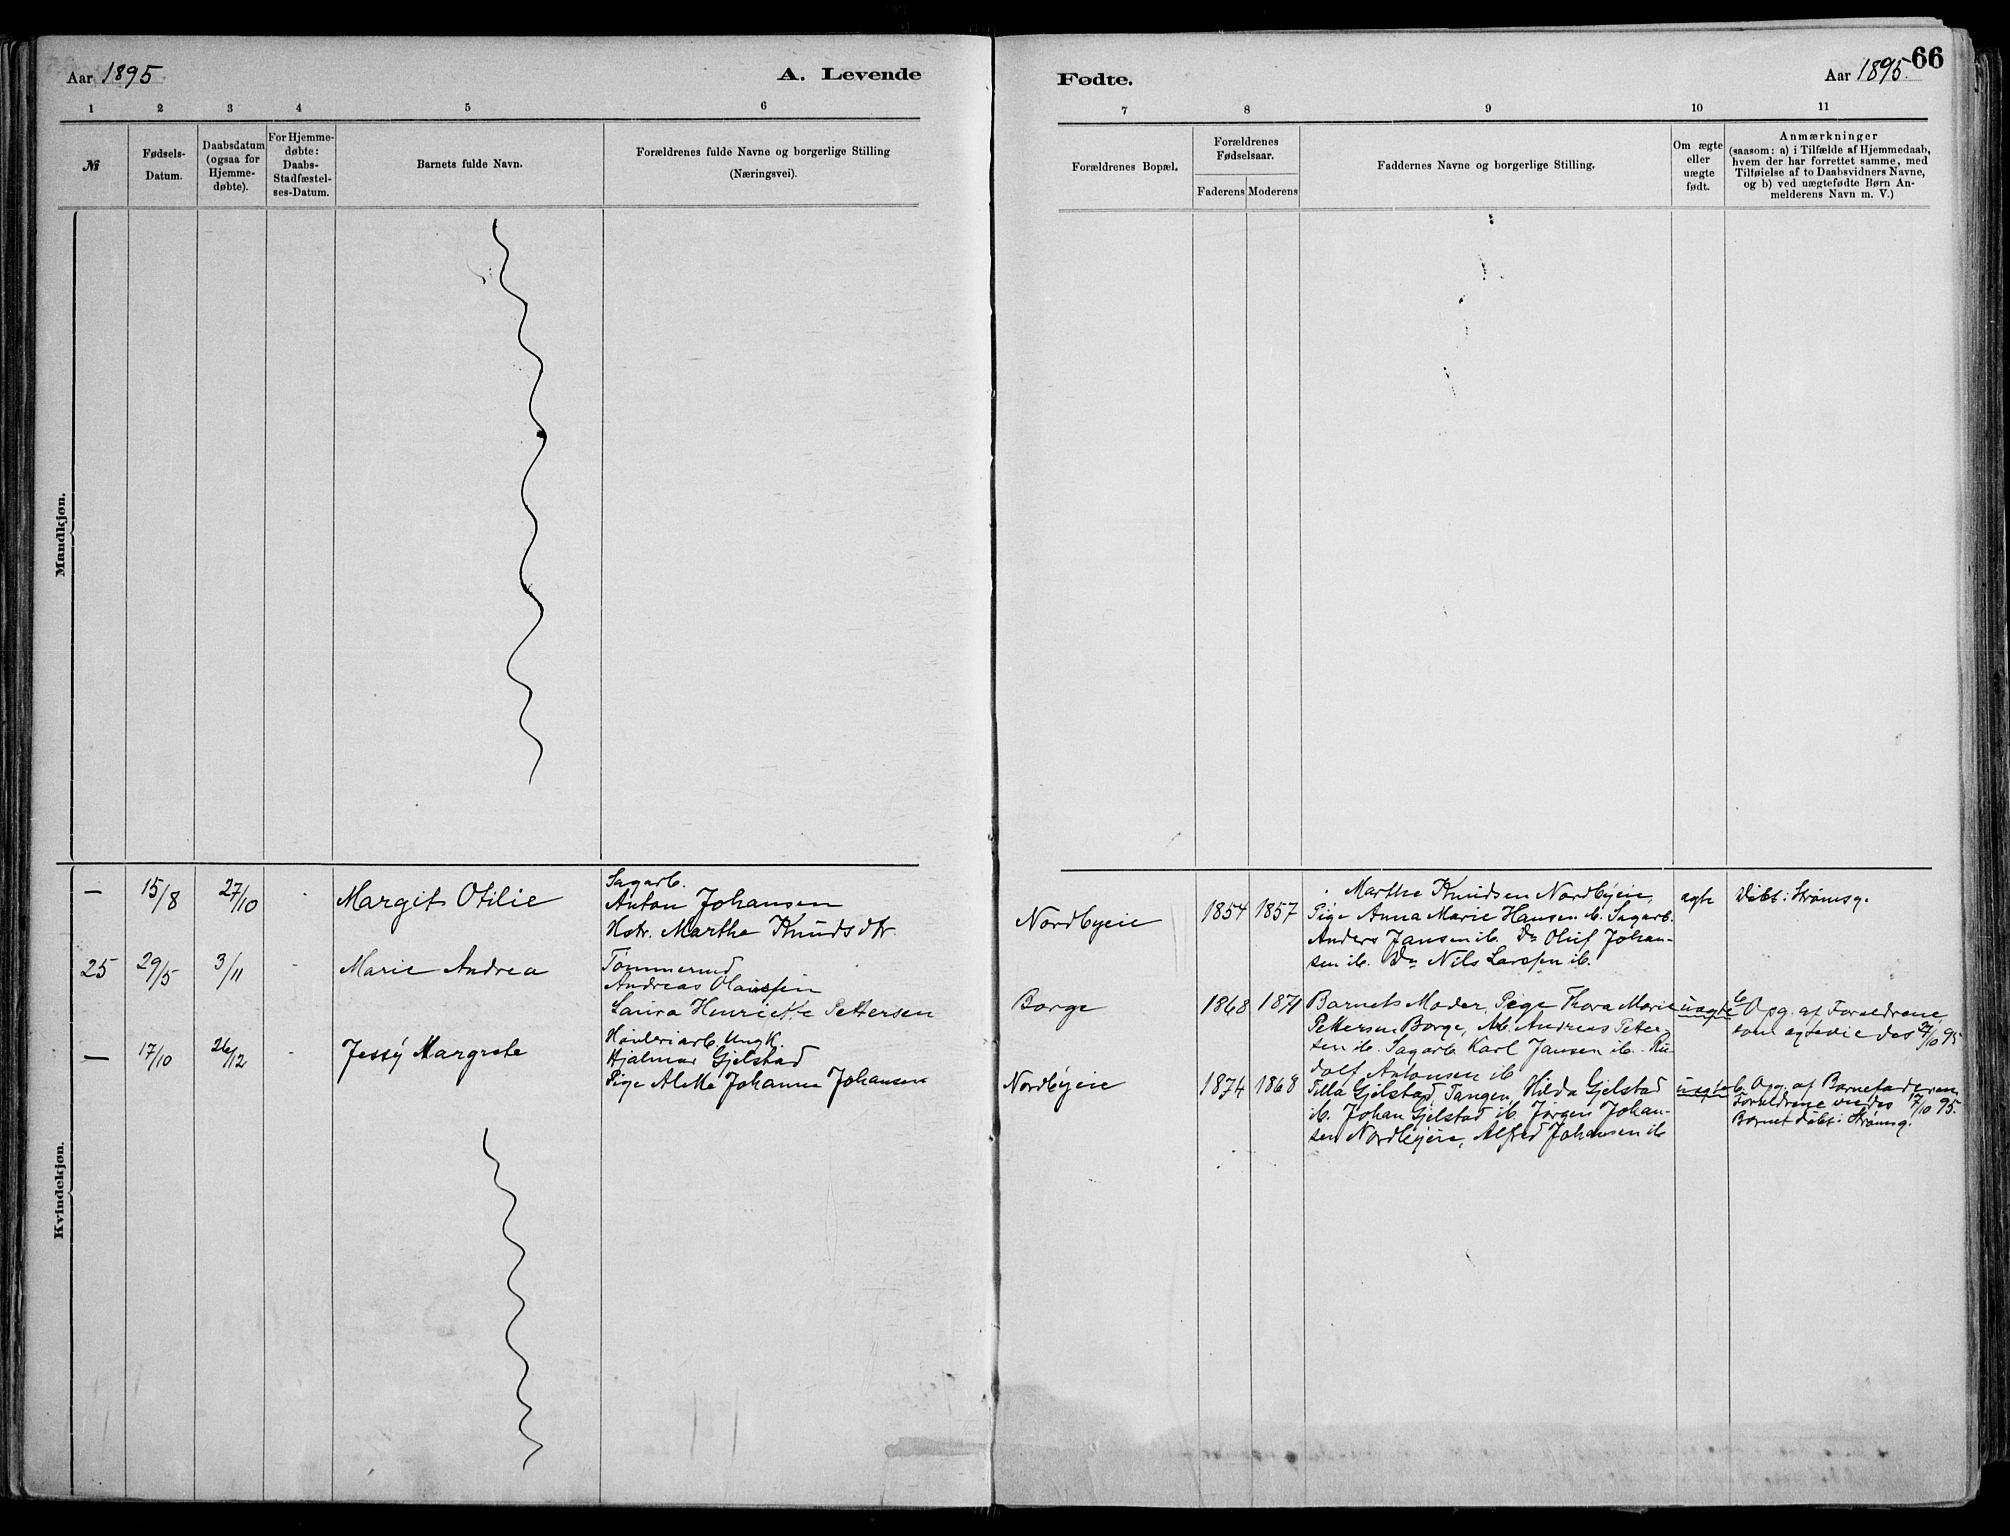 66
Aar 1895
A. Levende
Fødte.
Aar 1895.
1 2 3 4 5 6
7 8 9 10 11
№
Fødsels-
Datum.
Daabsdatum
(ogsaa for
Hjemme-
døbte).
For Hjemme-
døbte:
Daabs-
Stadfæstel-
ses-Datum.
Barnets fulde Navn.
Forældrenes fulde Navne og borgerlige Stilling
(Næringsvei).
Forældrenes Bopæl.
Forældrenes
Fødselsaar.
Faderens Moderens
Faddernes Navne og borgerlige Stilling.
Om ægte
eller
uægte
født.
Anmærkninger
(saasom: a) i Tilfælde af Hjemmedaab,
hvem der har forrettet samme, med
Tilføielse af to Daabsvidners Navne,
og b) ved uægtefødte Børn An-
melderens Navn m. V.)
Mandkjøn.
Kvindekjøn.
— 15/8 27/10 Margit Otilie
Sagarb.
Anton Johansen
Hstr. Marthe Knudsdtr.
Nordbyeie 1854 1857
Marthe Knudsen Nordbyeie,
Pige Anna Marie Hansen ib. Sagarb.
Anders Jansen ib. Do Oluf Johan-
sen ib. Do Nils Larssen ib.
ægte
Døbt: Strømsg.
25 29/5 3/11 Marie Andrea
Tømmermd
Andreas Olaussen
Laura Henriette Pettersen
Borge 1868 1871
Barnets Moder, Pige Thora Marie
Pettersen Borge, Arb. Andreas Petter-
sen ib. Sagarb. Karl Jansen ib. Ru-
dolf Antonsen ib
uægte
b. Opg. af Forældrene,
som ægtevie des 27/10 95
— 17/10 26/12 Jessy Margrete
Høvleriarb. Ungk.
Hjalmar Gjelstad
Pige Alette Johanne Johansen
Nordbyeie 1874 1868
Tilla Gjelstad, Tangen, Hilda Gjelstad
ib. Johan Gjelstad ib. Jørgen Johan-
sen Nordbyeie, Alfred Johansen ib
uægte
b. Opg. af Barnefaderen,
Forældrene viedes 17/10 95.
Barnet døbt i Strømsg.